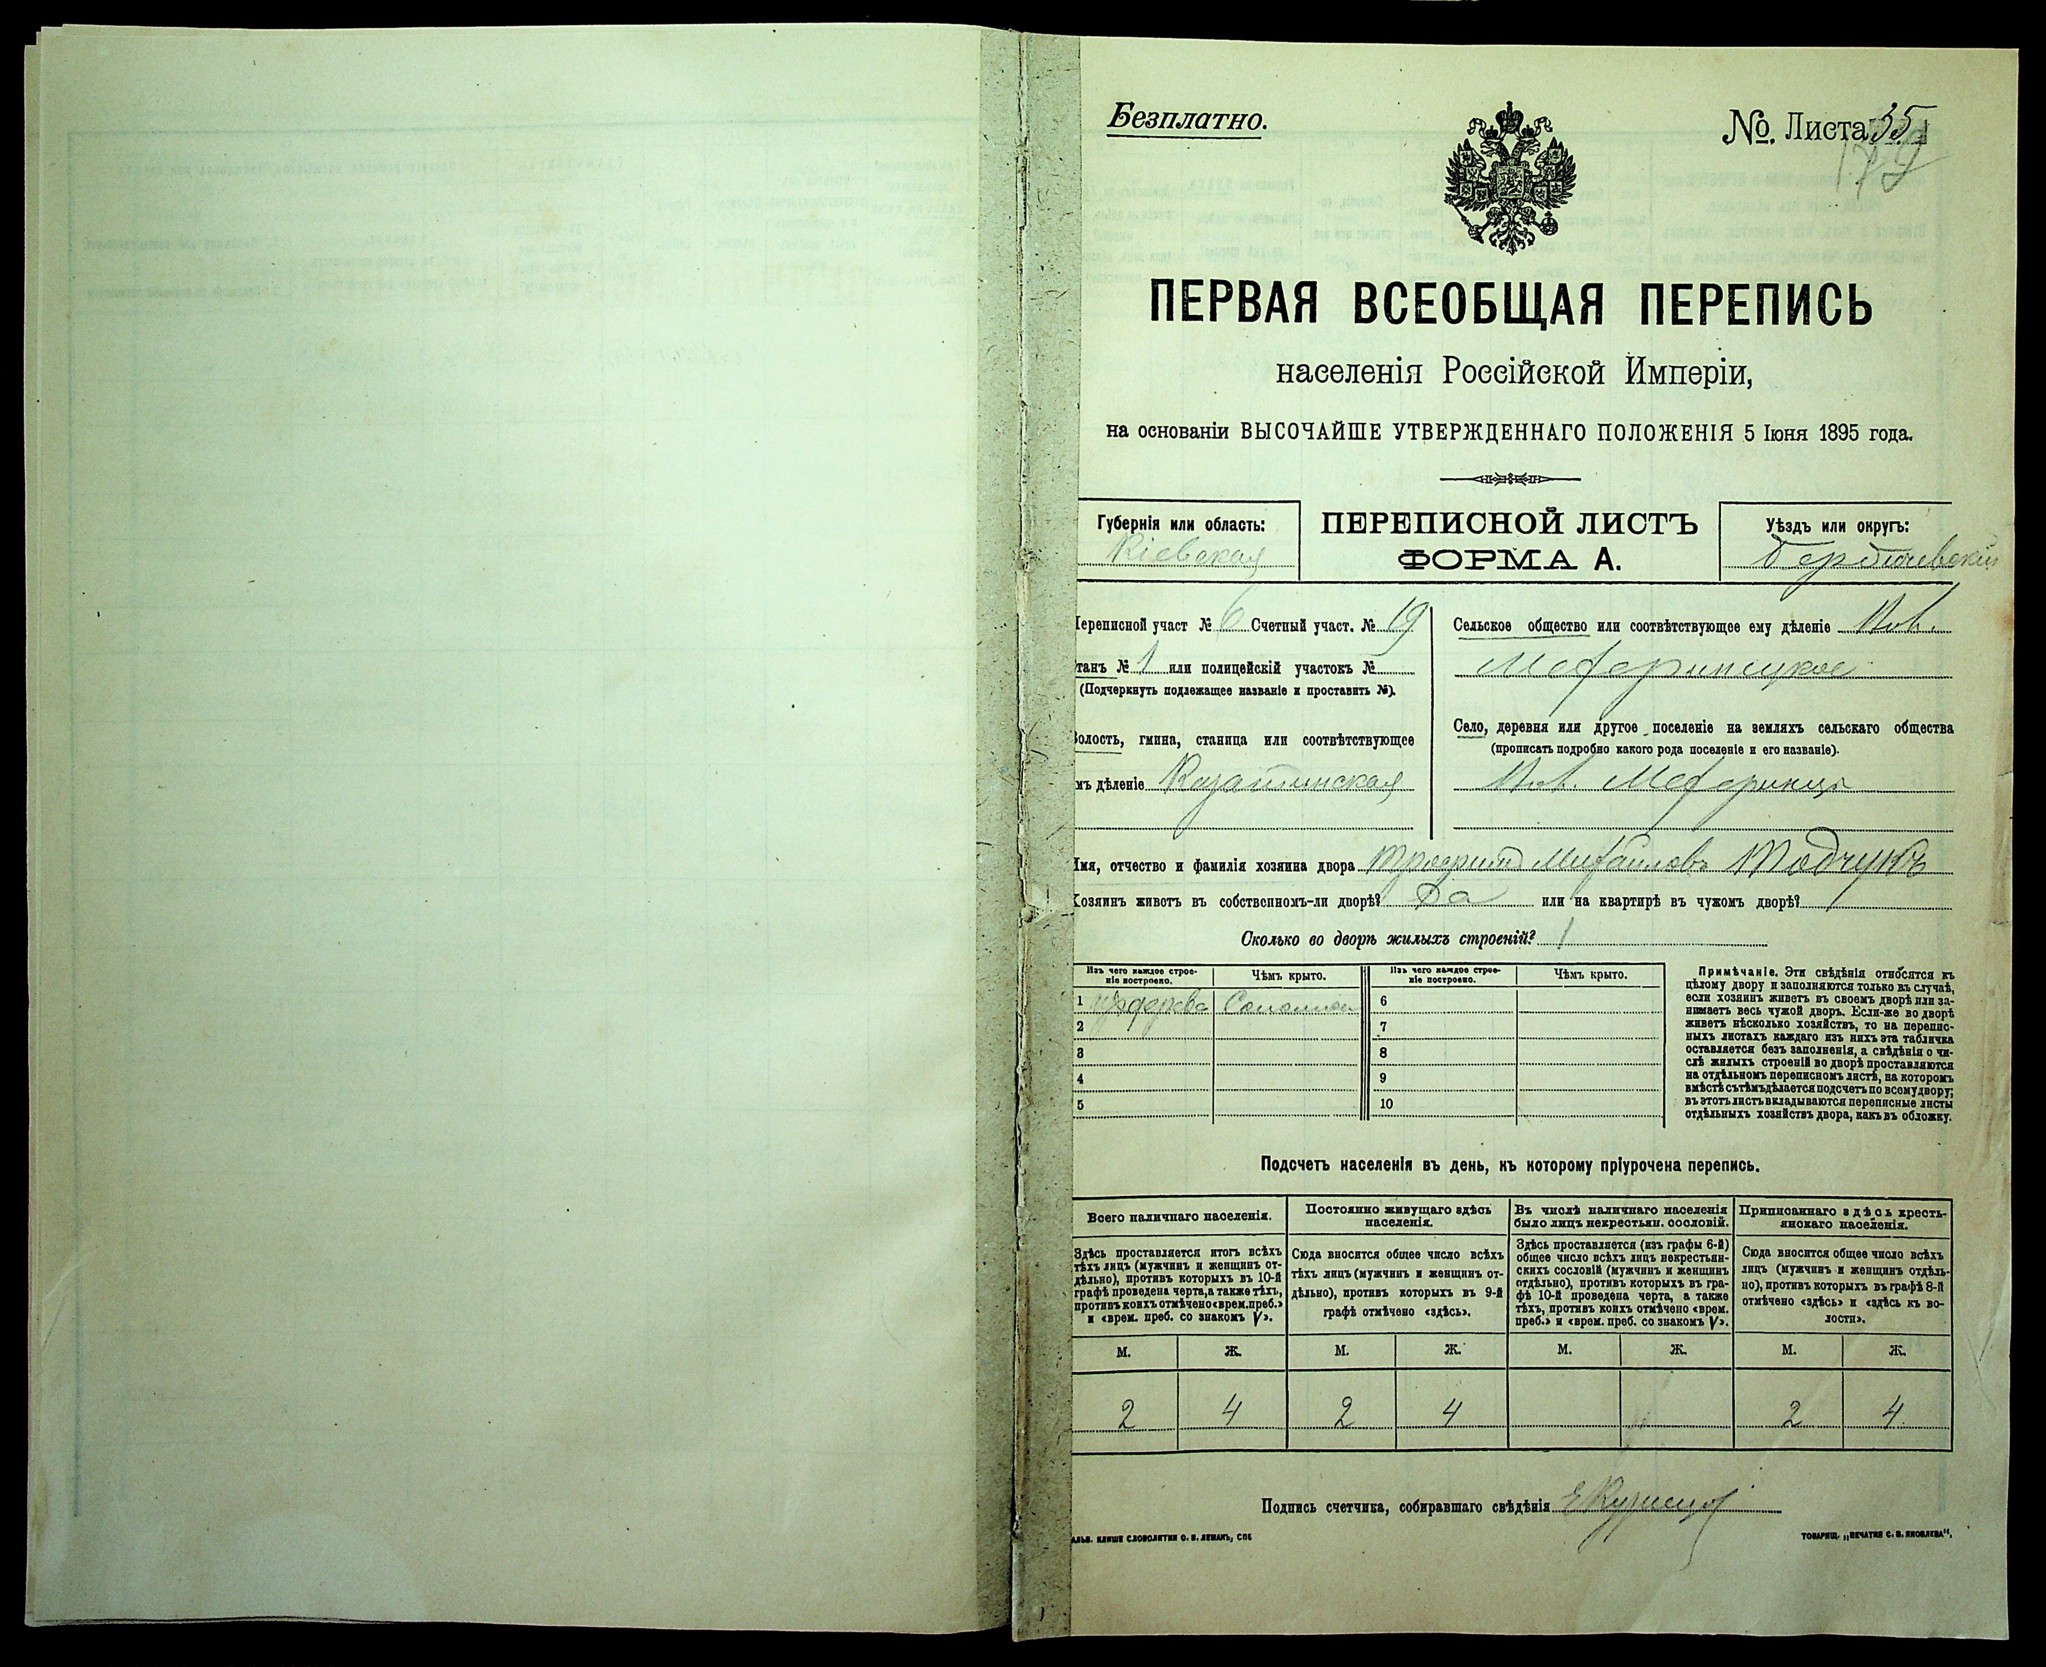 Безплатно.
№. Листа 35
ПЕРВАЯ ВСЕОБЩАЯ ПЕРЕПИСЬ
населенія Россійской Имперіи,
на основаніи ВЫСОЧАЙШЕ УТВЕРЖДЕННАГО ПОЛОЖЕНІЯ 5 Іюня 1895 года.
Губернія или область:
Кіевская
ПЕРЕПИСНОЙ ЛИСТЪ
ФОРМА А.
Уѣздъ или округъ:
Бердичевскій
Переписной участ № 6 Счетный участ. № 19
танъ № 1 или полицейскій участокъ №
(Подчеркнуть подлежащее названіе и проставить №).
олость, гмина, станица или соотвѣтствующее
мъ дѣленіе Казатинская
Сельское общество или соотвѣтствующее ему дѣленіе
Село, деревня или другое поселеніе на земляхъ сельскаго общества
(прописать подробно какого рода поселеніе и его названіе).
Имя, отчество и фамилія хозяина двора Трофимъ Михайловъ
Хозяинъ живетъ въ собственномъ-ли дворѣ? Да или на квартирѣ въ чужомъ дворѣ?
Сколько во дворѣ жилыхъ строеній? 1
Изъ чего каждое строе-
ніе построено.
Чѣмъ крыто.
Изъ чего каждое строе-
ніе построено.
Чѣмъ крыто.
1 изъ дерева Соломой 6
2 7
3 8
4 9
5 10
Примѣчаніе. Эти свѣдѣнія относятся къ
цѣлому двору и заполняются только въ случаѣ,
если хозяинъ живетъ въ своемъ дворѣ или за-
нимаетъ весь чужой дворъ. Если-же во дворѣ
живетъ нѣсколько хозяйствъ, то на перепис-
ныхъ листахъ каждаго изъ нихъ эта табличка
оставляется безъ заполненія, а свѣдѣнія о чи-
слѣ жилыхъ строеній во дворѣ проставляются
на отдѣльномъ переписномъ листѣ, на которомъ
вмѣстѣ съ тѣмъ дѣлается подсчетъ по всему двору;
въ этотъ листъ вкладываются переписные листы
отдѣльныхъ хозяйствъ двора, какъ въ обложку.
Подсчетъ населенія въ день, къ которому пріурочена перепись.
Всего наличнаго населенія.
Здѣсь проставляется итогъ всѣхъ
тѣхъ лицъ (мужчинъ и женщинъ от-
дѣльно), противъ которыхъ въ 10-й
графѣ проведена черта, а также тѣхъ,
противъ коихъ отмѣчено «врем. преб.»
и «врем. преб. со знакомъ V».
Постоянно живущаго здѣсь
населенія.
Сюда вносится общее число всѣхъ
тѣхъ лицъ (мужчинъ и женщинъ от-
дѣльно), противъ которыхъ въ 9-й
графѣ отмѣчено «здѣсь».
Въ числѣ наличнаго населенія
было лицъ некрестьян. сословій.
Здѣсь проставляется (изъ графы 6-й)
общее число всѣхъ лицъ некрестьян-
скихъ сословій (мужчинъ и женщинъ
отдѣльно), противъ которыхъ въ гра-
фѣ 10-й проведена черта, а также
тѣхъ, противъ коихъ отмѣчено «врем.
преб.» и «врем. преб. со знакомъ V».
Приписаннаго здѣсь кресть-
янскаго населенія.
Сюда вносится общее число всѣхъ
лицъ (мужчинъ и женщинъ отдѣль-
но), противъ которыхъ въ графѣ 8-й
отмѣчено «здѣсь» и «здѣсь къ во-
лости».
М. Ж. М. Ж. М. Ж. М. Ж.
2 4 2 4 2 4
Подпись счетчика, собиравшаго свѣдѣнія
АЛЬВ. КЛИШЕ СЛОВОЛИТНИ О. И. ЛЕМАНЪ, СПБ
ТОВАРИЩ. „ПЕЧАТНЯ С. П. ЯКОВЛЕВА“.